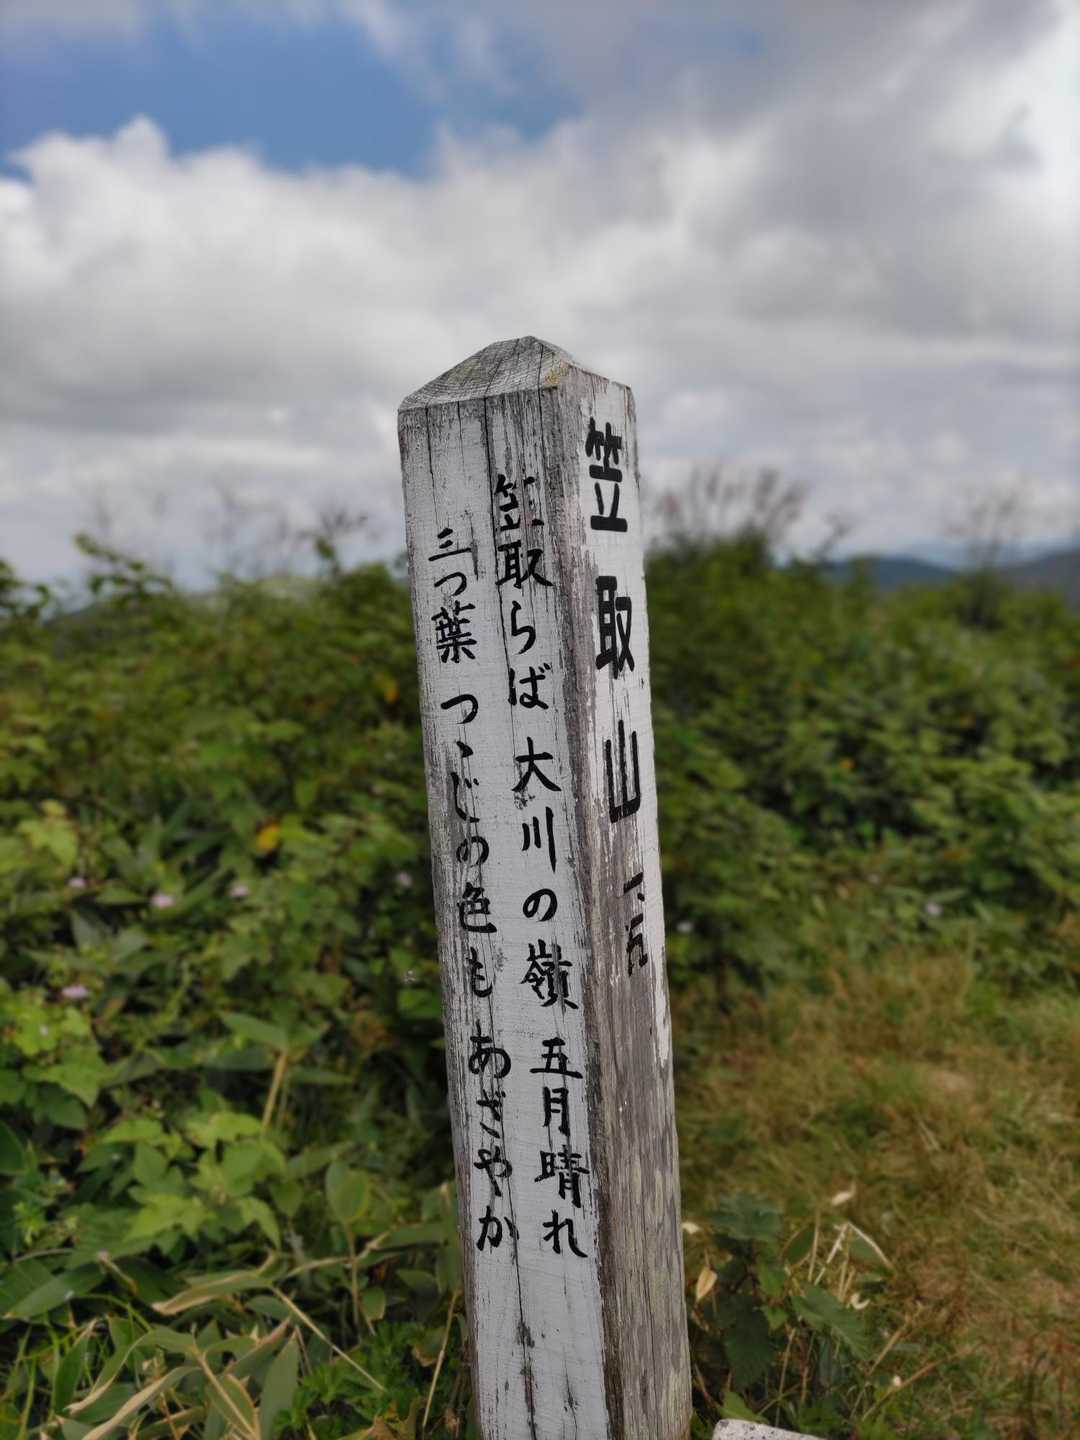 笠取山
笠取らば大川の嶺五月晴れ
三つ葉つゝじの色もあざやか